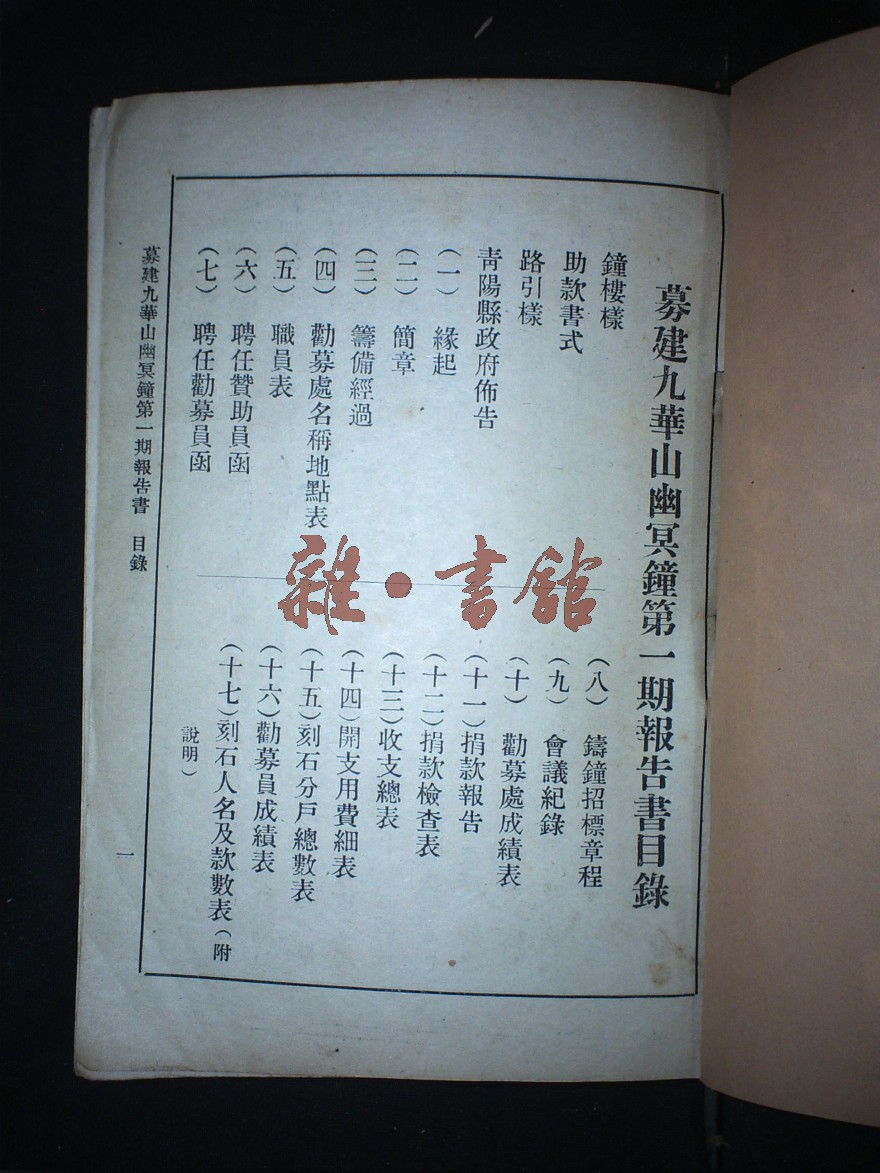 募建九華山幽冥鐘第一期報告書目錄
鐘樓樣
助款書式
路引樣
青陽縣政府佈告
（一） 緣起
（二） 簡章
（三） 籌備經過
（四） 勸募處名稱地點表
（五） 職員表
（六） 聘任贊助員函
（七） 聘任勸募員函
（八） 鑄鐘招標章程
（九） 會議紀錄
（十） 勸募處成績表
（十一）捐款報告
（十二）捐款檢查表
（十三）收支總表
（十四）開支用費細表
（十五）刻石分戶總數表
（十六）勸募員成績表
（十七）刻石人名及款數表（附
說明）
募建九華山幽冥鐘第一期報告書 目錄
一
雜·書館